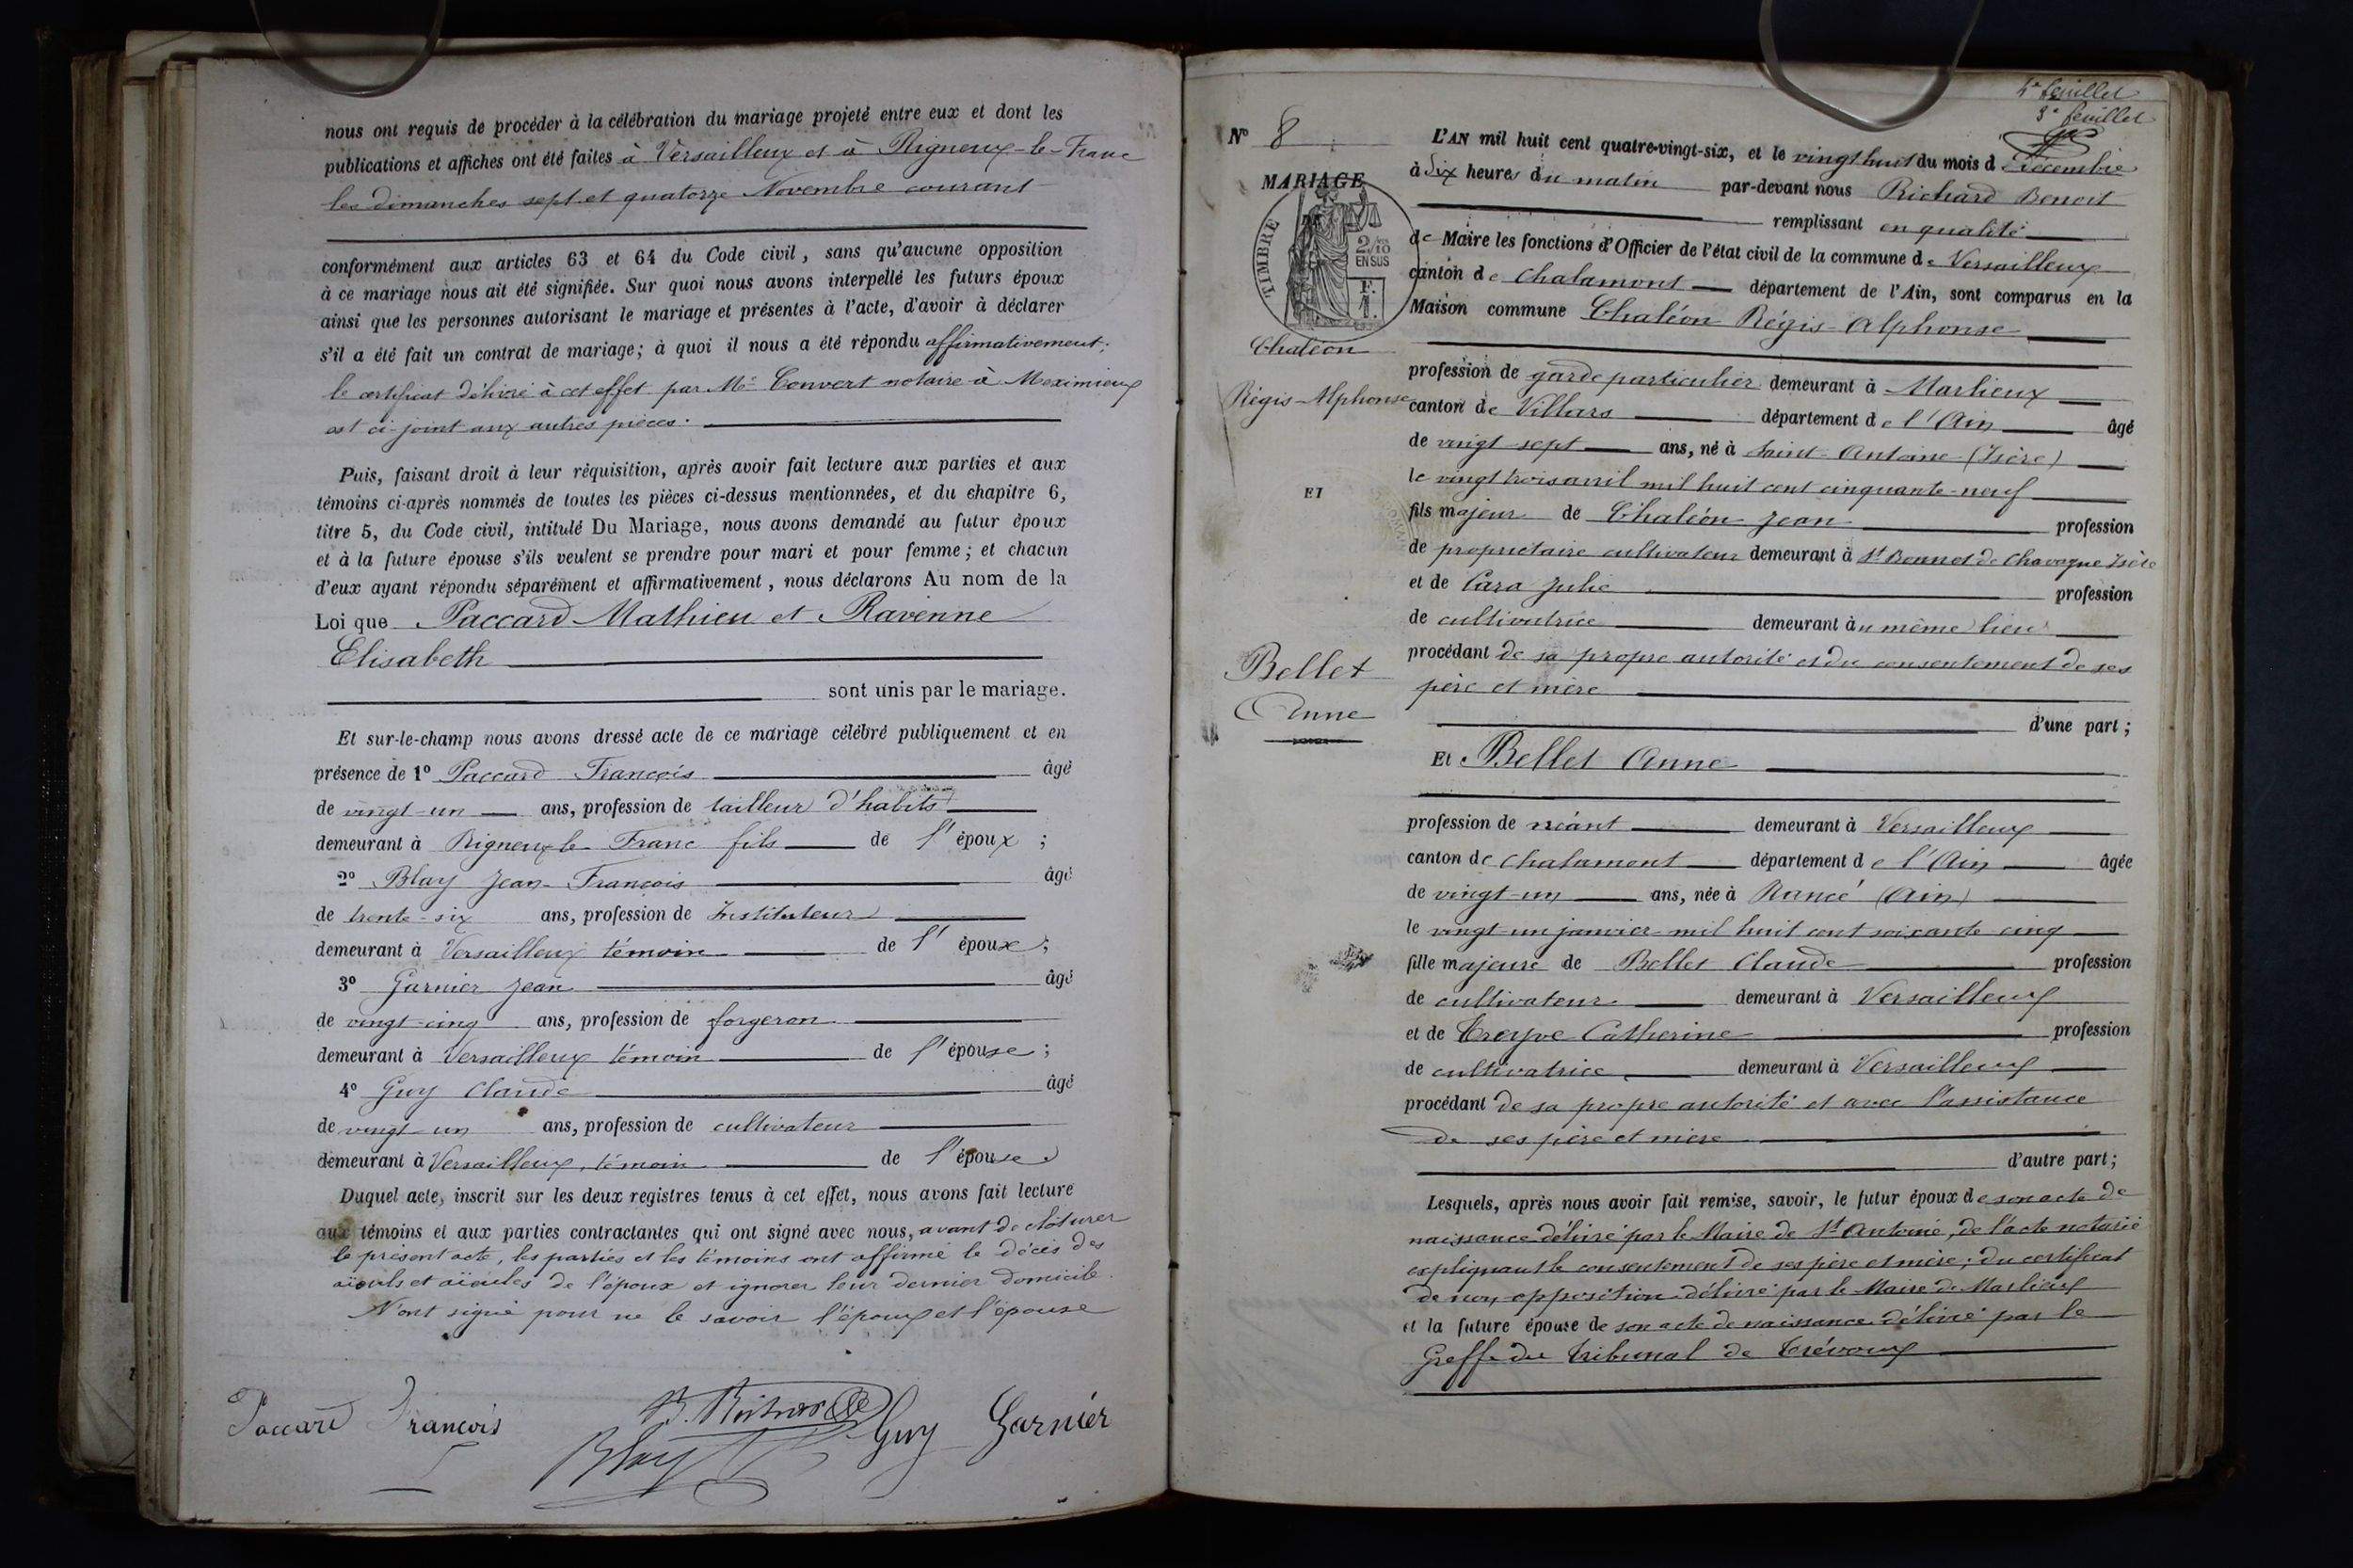 nous ont requis de procéder à la célébration du mariage projeté entre eux et dont les
publications et affiches ont été faites à Versailleux et à Rigneux-le-Franc
les dimanches sept et quatorze Novembre courant
conformément aux articles 63 et 64 du Code civil, sans qu'aucune opposition
à ce mariage nous ait été signifiée. Sur quoi nous avons interpellé les futurs époux
ainsi que les personnes autorisant le mariage et présentes à l'acte, d'avoir à déclarer
s'il a été fait un contrat de mariage; à quoi il nous a été répondu affirmativement;
le certificat délivré à cet effet par Me Convert notaire à Meximieux
est ci-joint aux autres pièces.
Puis, faisant droit à leur réquisition, après avoir fait lecture aux parties et aux
témoins ci-après nommés de toutes les pièces ci-dessus mentionnées, et du chapitre 6,
titre 5, du Code civil, intitulé Du Mariage, nous avons demandé au futur époux
et à la future épouse s'ils veulent se prendre pour mari et pour femme; et chacun
d'eux ayant répondu séparément et affirmativement, nous déclarons Au nom de la
Loi que Paccard Mathieu et Ravenne
Elisabeth
sont unis par le mariage.
Et sur-le-champ nous avons dressé acte de ce mariage célébré publiquement et en
présence de 1º Paccard François âgé
de vingt-un ans, profession de tailleur d'habits
demeurant à Rigneux-le-Franc fils de l'époux;
2º Blay Jean-François âgé
de trente-six ans, profession de Instituteur
demeurant à Versailleux témoin de l'époux;
3º Garnier Jean âgé
de vingt-cinq ans, profession de forgeron
demeurant à Versailleux témoin de l'épouse;
4º Guy Claude âgé
de vingt-un ans, profession de cultivateur
demeurant à Versailleux, témoin de l'épouse
Duquel acte, inscrit sur les deux registres tenus à cet effet, nous avons fait lecture
aux témoins et aux parties contractantes qui ont signé avec nous, avant de clôturer
le présent acte, les parties et les témoins ont affirmé le décès des
aïeuls et aïeules de l'époux et ignorer leur dernier domicile.
N'ont signé pour ne le savoir l'époux et l'épouse
Paccard François
Blay
Guy
Garnier
4e feuillet
3e feuillet
Nº 8
MARIAGE
TIMBRE
2/10
EN SUS
F.
1.
Chaléon
Régis-Alphonse
ET
Bellet
Anne
L'AN mil huit cent quatre-vingt-six, et le vingt huit du mois d Décembre
à dix heures du matin par-devant nous Richard Benoit
remplissant en qualité
de Maire les fonctions d'Officier de l'état civil de la commune de Versailleux
canton de Chalamont département de l'Ain, sont comparus en la
Maison commune Chaléon Régis-Alphonse
profession de garde particulier demeurant à Marlieux
canton de Villars département de l'Ain âgé
de vingt-sept ans, né à Saint-Antoine (Isère)
le vingt trois avril mil huit cent cinquante-neuf
fils majeur de Chaléon Jean profession
de propriétaire cultivateur demeurant à St Bonnet de Chavagne Isère
et de Cara Julie profession
de cultivatrice demeurant au même lieu
procédant de sa propre autorité et du consentement de ses
père et mère
d'une part;
Et Bellet Anne
profession de néant demeurant à Versailleux
canton de Chalamont département de l'Ain âgée
de vingt-un ans, née à Rancé (Ain)
le vingt-un janvier mil huit cent soixante cinq
fille majeure de Bellet Claude profession
de cultivateur demeurant à Versailleux
et de Treyve Catherine profession
de cultivatrice demeurant à Versailleux
procédant de sa propre autorité et avec l'assistance
de ses père et mère
d'autre part;
Lesquels, après nous avoir fait remise, savoir, le futur époux de son acte de
naissance délivré par le Maire de St Antoine, de l'acte notarié
expliquant le consentement de ses père et mère; du certificat
de non opposition délivré par le Maire de Marlieux
et la future épouse de son acte de naissance délivré par le
Greffe du tribunal de Trévoux